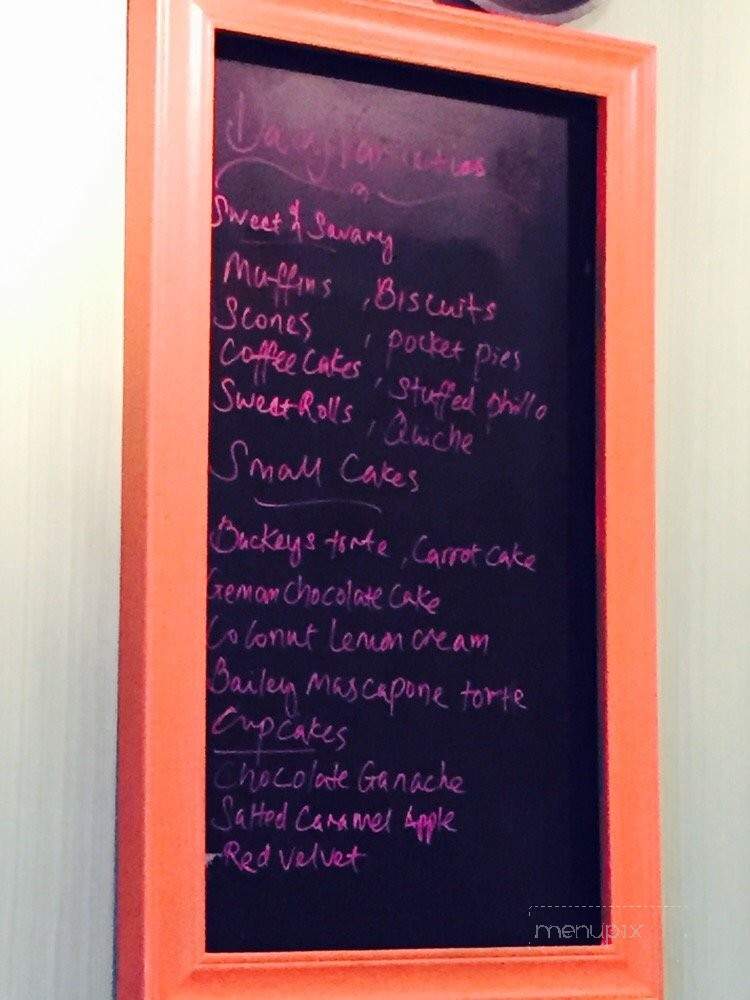 Daily Varieties
Sweet & Savary
Muffins , Biscuits
Scones , pocket pies
Coffee Cakes , Stuffed phillo
Sweet Rolls , Quiche
Small Cakes
Buckeys torte , Carrot cake
Geman Chocolate Cake
Coconut Lemon cream
Bailey Mascapone torte
Cupcakes
Chocolate Ganache
Salted Caramel Apple
Red Velvet
menupix